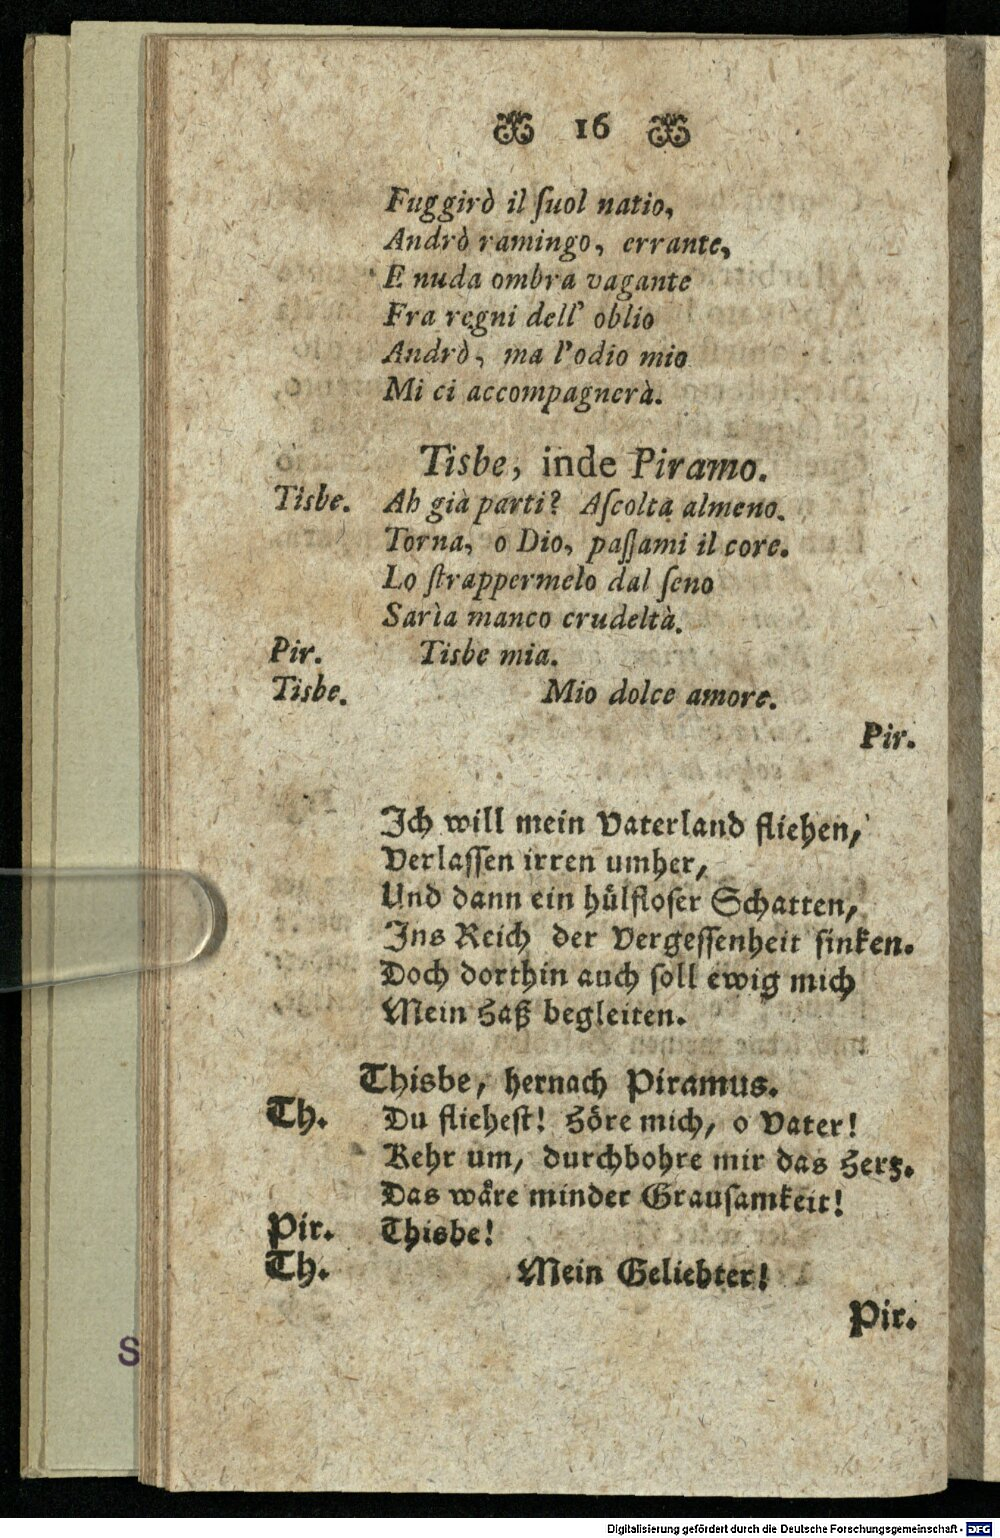 16
Fuggirò il ſuol natio,
Andrò ramingo, errante,
E nuda ombra vagante
Fra regni dell' oblio
Andrò, ma l'odio mio
Mi ci accompagnerà.
Tisbe, inde Piramo.
Tisbe. Ah già parti? Aſcolta almeno.
Torna, o Dio, paſſami il core.
Lo ſtrappermelo dal ſeno
Sarìa manco crudeltà.
Pir. Tisbe mia.
Tisbe. Mio dolce amore.
Pir.
Ich will mein Vaterland fliehen,
Verlaſſen irren umher,
Und dann ein hülfloſer Schatten,
Ins Reich der Vergeſſenheit ſinken.
Doch dorthin auch ſoll ewig mich
Mein Haß begleiten.
Thisbe, hernach Piramus.
Th. Du flieheſt! Höre mich, o Vater!
Kehr um, durchbohre mir das Herz.
Das wäre minder Grauſamkeit!
Pir. Thisbe!
Th. Mein Geliebter!
Pir.
S
Digitalisierung gefördert durch die Deutsche Forschungsgemeinschaft - DFG